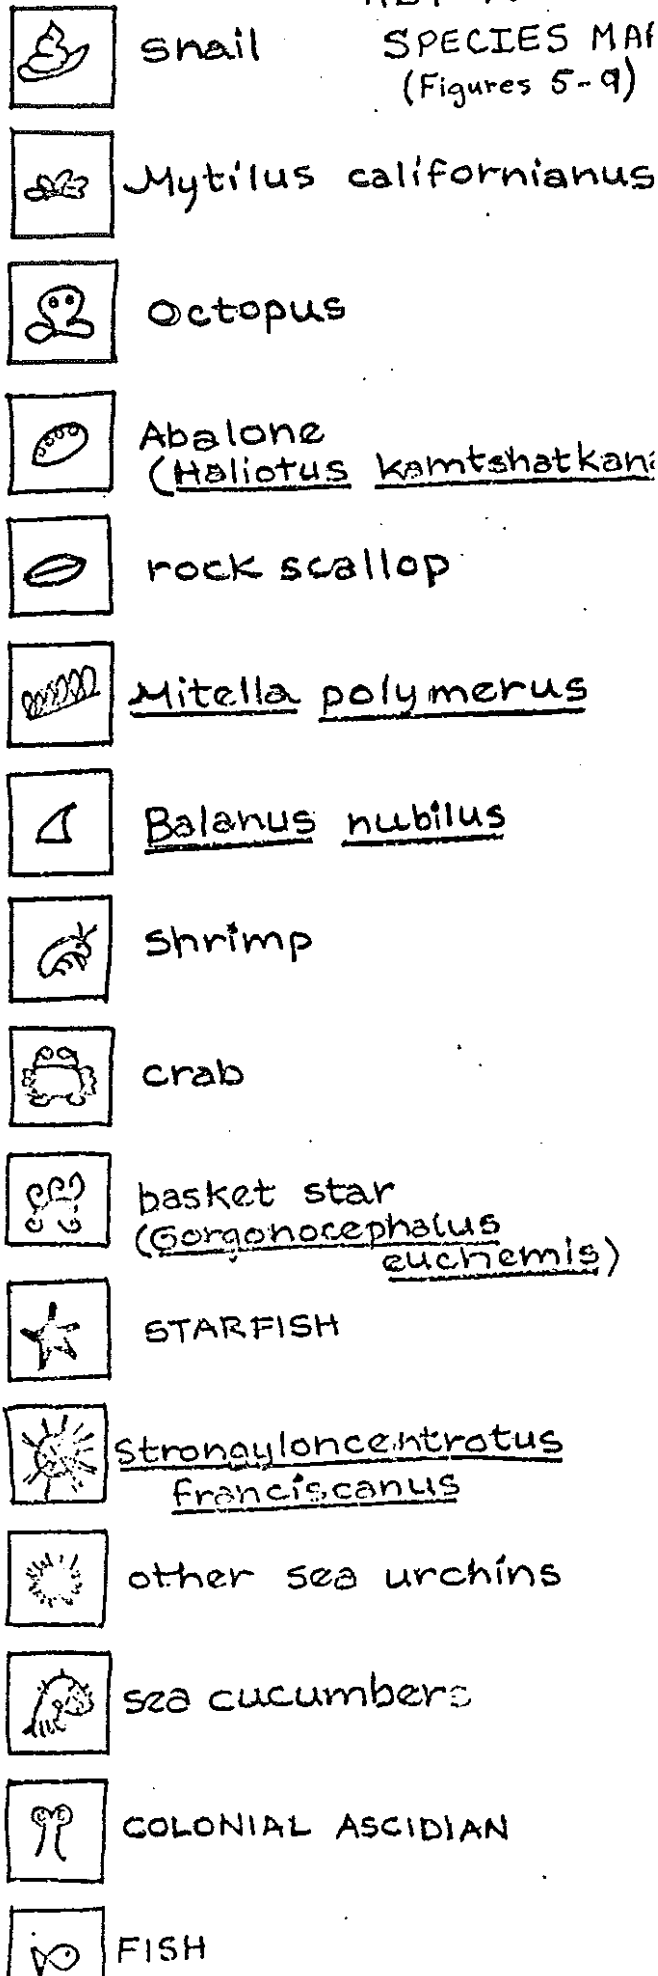 snail
SPECIES MAP
(Figures 5-9)
Mytilus californianus
Octopus
Abalone
(Haliotus kamtshatkana
rock scallop
Mitella polymerus
Balanus nubilus
shrimp
crab
basket star
(Gorgonocephalus
euchemis)
STARFISH
Strongyloncentrotus
franciscanus
other sea urchins
sea cucumbers
COLONIAL ASCIDIAN
FISH